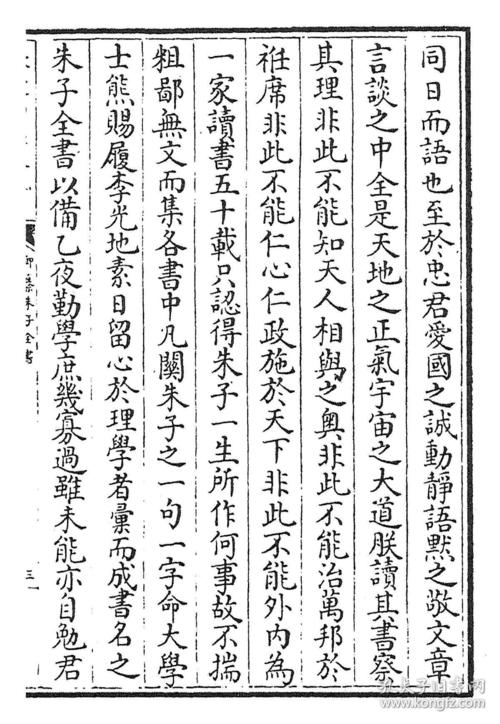 同日而語也至於忠君愛國之誠動靜語默之敬文章
言談之中全是天地之正氣宇宙之大道朕讀其書察
其理非此不能知天人相與之奧非此不能治萬邦於
袵席非此不能仁心仁政施於天下非此不能外内為
一家讀書五十載只認得朱子一生所作何事故不揣
粗鄙無文而集各書中凡關朱子之一句一字命大學
士熊賜履李光地素日留心於理學者彙而成書名之
朱子全書以備乙夜勤學庶幾寡過雖未能亦自勉君
御纂朱子全書
三
孔夫子旧书网
kongfz.com